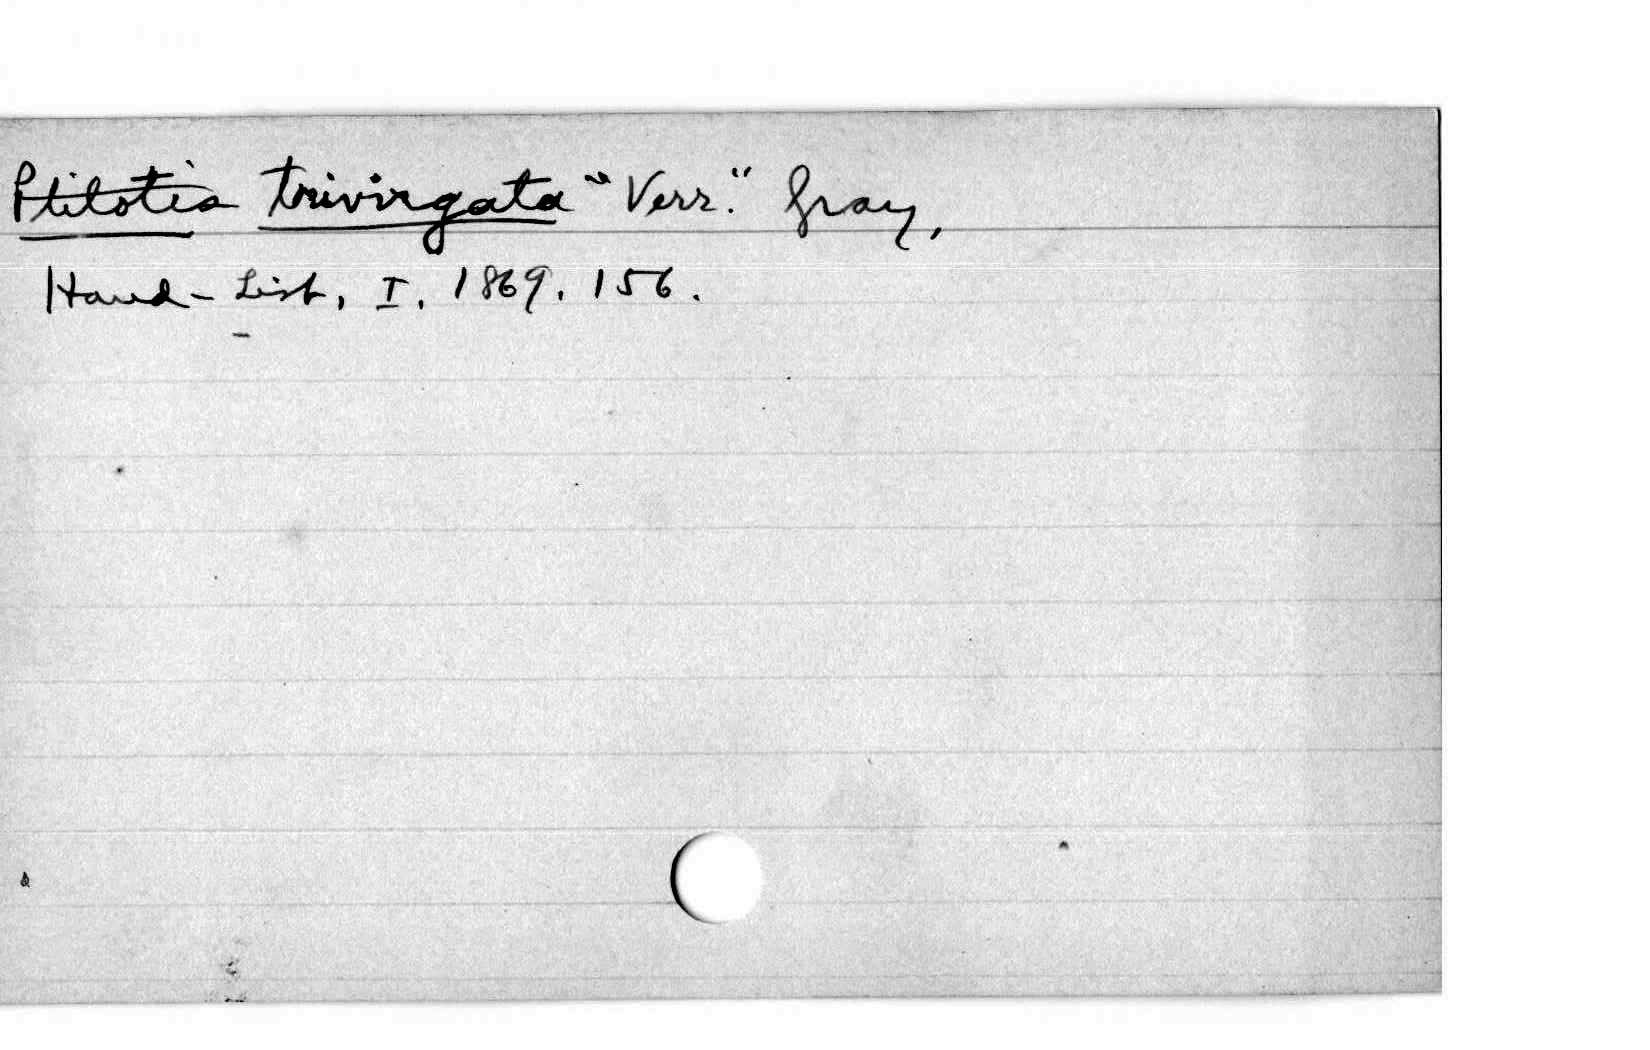 Ptilotis trivirgata "Verr." Gray,
Hand-List, I, 1869. 156.